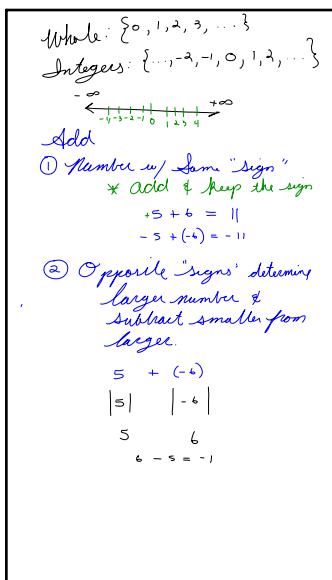 Whole: {0, 1, 2, 3, ...}
Integers: {..., -2, -1, 0, 1, 2, ...}
-∞ +∞
-4 -3 -2 -1 0 1 2 3 4
Add
① Number w/ Same "sign"
* add & keep the sign
+5 + 6 = 11
-5 + (-6) = -11
② Opposite "signs" determine
larger number &
subtract smaller from
larger.
5 + (-6)
|5| |-6|
5 6
6 - 5 = -1